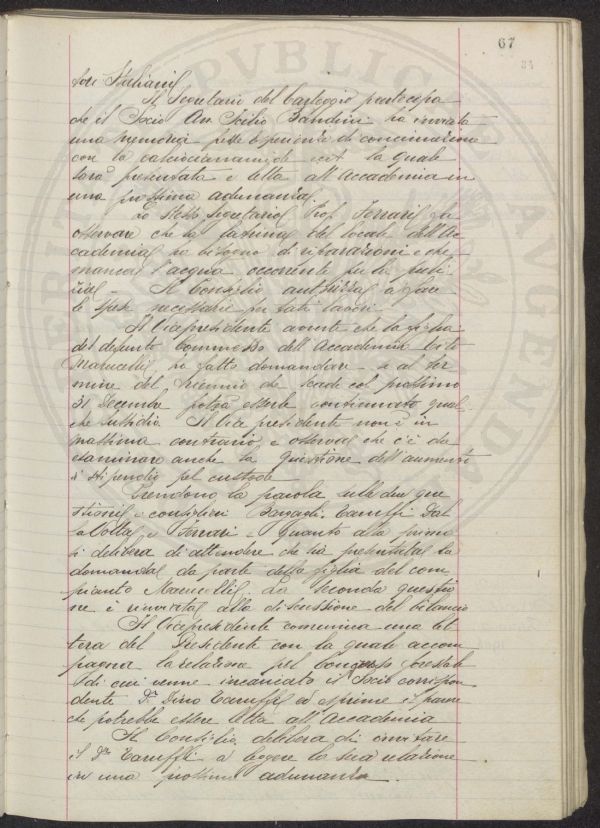 67
Italiani
Il Segretario del Carteggio partecipa
che il Socio Avv. Bandini ha inviato
una memoria sulle Esperienze di concimazione
con la calciocianamide la quale
sarà presentata e letta all'Accademia in
una prossima adunanza.
Lo stesso Segretario Prof. Ferrari fa
osservare che la latrina del locale dell'Ac
cademia ha bisogno di riparazioni e che
manca l'acqua occorrente per la puli
zia – Il Consiglio autorizza a fare
le spese necessarie per tali lavori.
Il Vicepresidente avverte che la figlia
del defunto Commesso dell'Accademia
Marucelli ha fatto domandare se al ter
mine del triennio che scade col prossimo
31 Decembre potrà esserle continuato qual
che sussidio. Il Vice presidente non è in
massima contrario, e osserva che c'è da
esaminare anche la questione dell'aumento
di stipendio pel custode
Prendono la parola sulle due que
stioni i consiglieri Bargagli, Tanuffi, Dal
la Volta, e Ferrari e quanto alla prima
si delibera di attendere che sia presentata la
domanda da parte della figlia del com
pianto Marucelli. La seconda questio
ne è rinviata alla discussione del bilancio
Il Vicepresidente comunica una let
tera del Presidente con la quale accom
pagna la relazione pel Congresso forestale
di cui venne incaricato il Socio corrispon
dente Dr. Dino Taruffi ed esprime il parere
che potrebbe essere letta all'Accademia
Il Consiglio delibera di invitare
il Dr Taruffi a leggere la sua relazione
in una prossima adunanza.